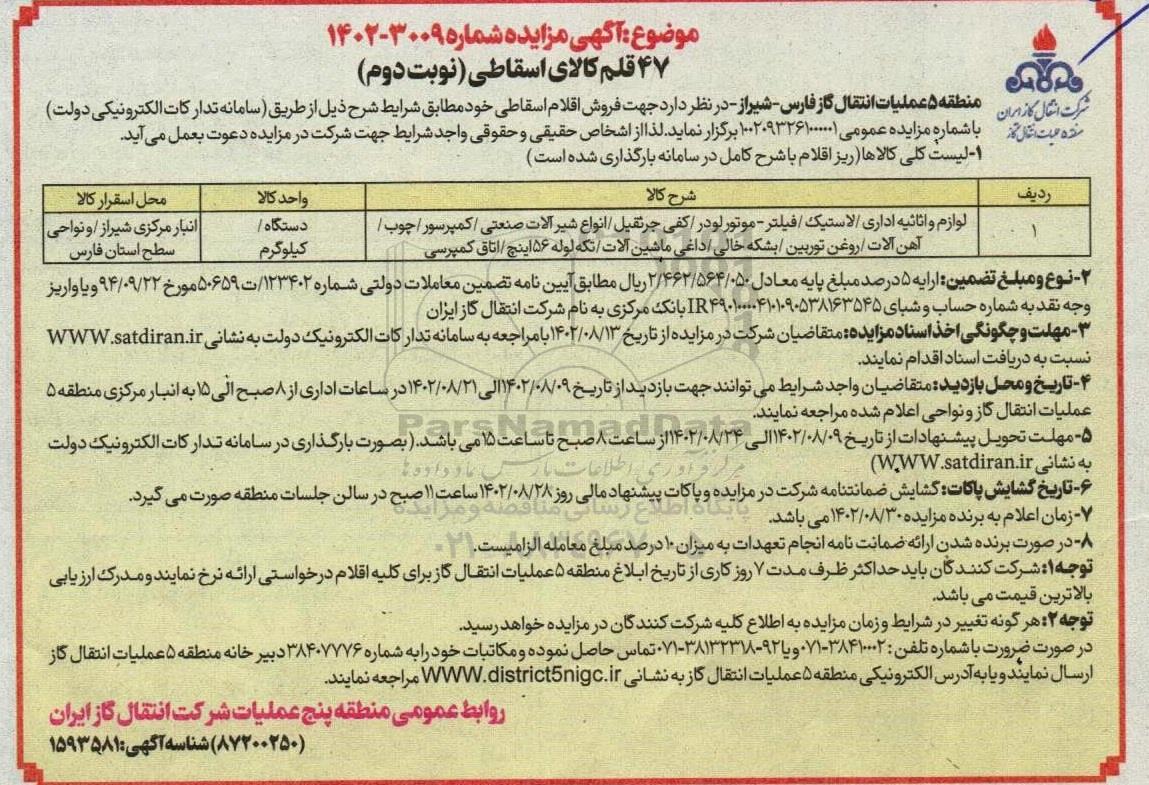 موضوع: آگهی مزایده شماره ۳۰۰۹-۱۴۰۲
۴۷ قلم کالای اسقاطی (نوبت دوم)
شرکت انتقال گاز ایران
منطقه ۵ عملیات انتقال گاز فارس-شیراز-در نظر دارد جهت فروش اقلام اسقاطی خود مطابق شرایط شرح ذیل از طریق (سامانه تدارکات الکترونیکی دولت)
با شماره مزایده عمومی ۱۰۰۲۰۹۳۲۶۱۰۰۰۰۰۱ برگزار نماید. لذا از اشخاص حقیقی و حقوقی واجد شرایط جهت شرکت در مزایده دعوت بعمل می‌آید.
۱-لیست کلی کالاها (ریز اقلام با شرح کامل در سامانه بارگذاری شده است)
ردیف شرح کالا واحد کالا محل اسقرار کالا
۱ لوازم و اثاثیه اداری/لاستیک/فیلتر-موتور لودر/کفی جرثقیل/انواع شیر آلات صنعتی/کمپرسور/چوب/ دستگاه/ انبار مرکزی شیراز/و نواحی
آهن آلات/روغن توربین/بشکه خالی/داغی ماشین آلات/تکه لوله ۵۶ اینچ/اتاق کمپرسی کیلوگرم سطح استان فارس
۲-نوع و مبلغ تضمین: ارایه ۵ درصد مبلغ پایه معادل ۲/۴۶۲/۵۶۴/۰۵۰ ریال مطابق آیین نامه تضمین معاملات دولتی شماره ۱۲۳۴۰۲/ت۵۰۶۵۹ مورخ ۹۴/۰۹/۲۲ و یا واریز
وجه نقد به شماره حساب و شبای IR۴۹۰۱۰۰۰۰۴۱۰۱۰۹۰۵۳۸۱۶۳۵۴۵ بانک مرکزی به نام شرکت انتقال گاز ایران
۳-مهلت و چگونگی اخذ اسناد مزایده: متقاضیان شرکت در مزایده از تاریخ ۱۴۰۲/۰۸/۱۳ با مراجعه به سامانه تدارکات الکترونیک دولت به نشانی WWW.satdiran.ir
نسبت به دریافت اسناد اقدام نمایند.
۴-تاریخ و محل بازدید: متقاضیان واجد شرایط می توانند جهت بازدید از تاریخ ۱۴۰۲/۰۸/۰۹ الی ۱۴۰۲/۰۸/۲۱ در ساعات اداری از ۸ صبح الی ۱۵ به انبار مرکزی منطقه ۵
عملیات انتقال گاز و نواحی اعلام شده مراجعه نمایند.
۵-مهلت تحویل پیشنهادات از تاریخ ۱۴۰۲/۰۸/۰۹ الی ۱۴۰۲/۰۸/۲۴ از ساعت ۸ صبح تا ساعت ۱۵ می باشد. (بصورت بارگذاری در سامانه تدارکات الکترونیک دولت
به نشانی WWW.satdiran.ir)
۶-تاریخ گشایش پاکات: گشایش ضمانتنامه شرکت در مزایده و پاکات پیشنهاد مالی روز ۱۴۰۲/۰۸/۲۸ ساعت ۱۱ صبح در سالن جلسات منطقه صورت می گیرد.
۷-زمان اعلام به برنده مزایده ۱۴۰۲/۰۸/۳۰ می باشد.
۸-در صورت برنده شدن ارائه ضمانت نامه انجام تعهدات به میزان ۱۰ درصد مبلغ معامله الزامیست.
توجه۱: شرکت کنندگان باید حداکثر ظرف مدت ۷ روز کاری از تاریخ ابلاغ منطقه ۵ عملیات انتقال گاز برای کلیه اقلام درخواستی ارائه نرخ نمایند و مدرک ارزیابی
بالاترین قیمت می باشد.
توجه۲: هر گونه تغییر در شرایط و زمان مزایده به اطلاع کلیه شرکت کنندگان در مزایده خواهد رسید.
در صورت ضرورت با شماره تلفن: ۳۸۴۱۰۰۰۲-۰۷۱ و یا ۹۲-۳۸۱۳۲۳۱۸-۰۷۱ تماس حاصل نموده و مکاتبات خود را به شماره ۳۸۴۰۷۷۷۶ دبیر خانه منطقه ۵ عملیات انتقال گاز
ارسال نمایند و یا به آدرس الکترونیکی منطقه ۵ عملیات انتقال گاز به نشانی WWW.district5nigc.ir مراجعه نمایند.
روابط عمومی منطقه پنج عملیات شرکت انتقال گاز ایران
(۸۷۲۰۰۲۵۰) شناسه آگهی: ۱۵۹۳۵۸۱
ParsNamadData
مرکز فرآوری اطلاعات پارس نماد داده ها
پایگاه اطلاع رسانی مناقصه و مزایده